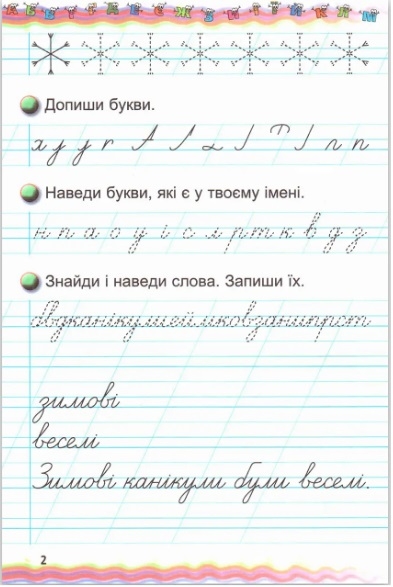 Допиши букви.
Наведи букви, які є у твоєму імені.
н п а о у і с л р т к в д з
Знайди і наведи слова. Запиши їх.
зимові
веселі
Зимові канікули були веселі.
2